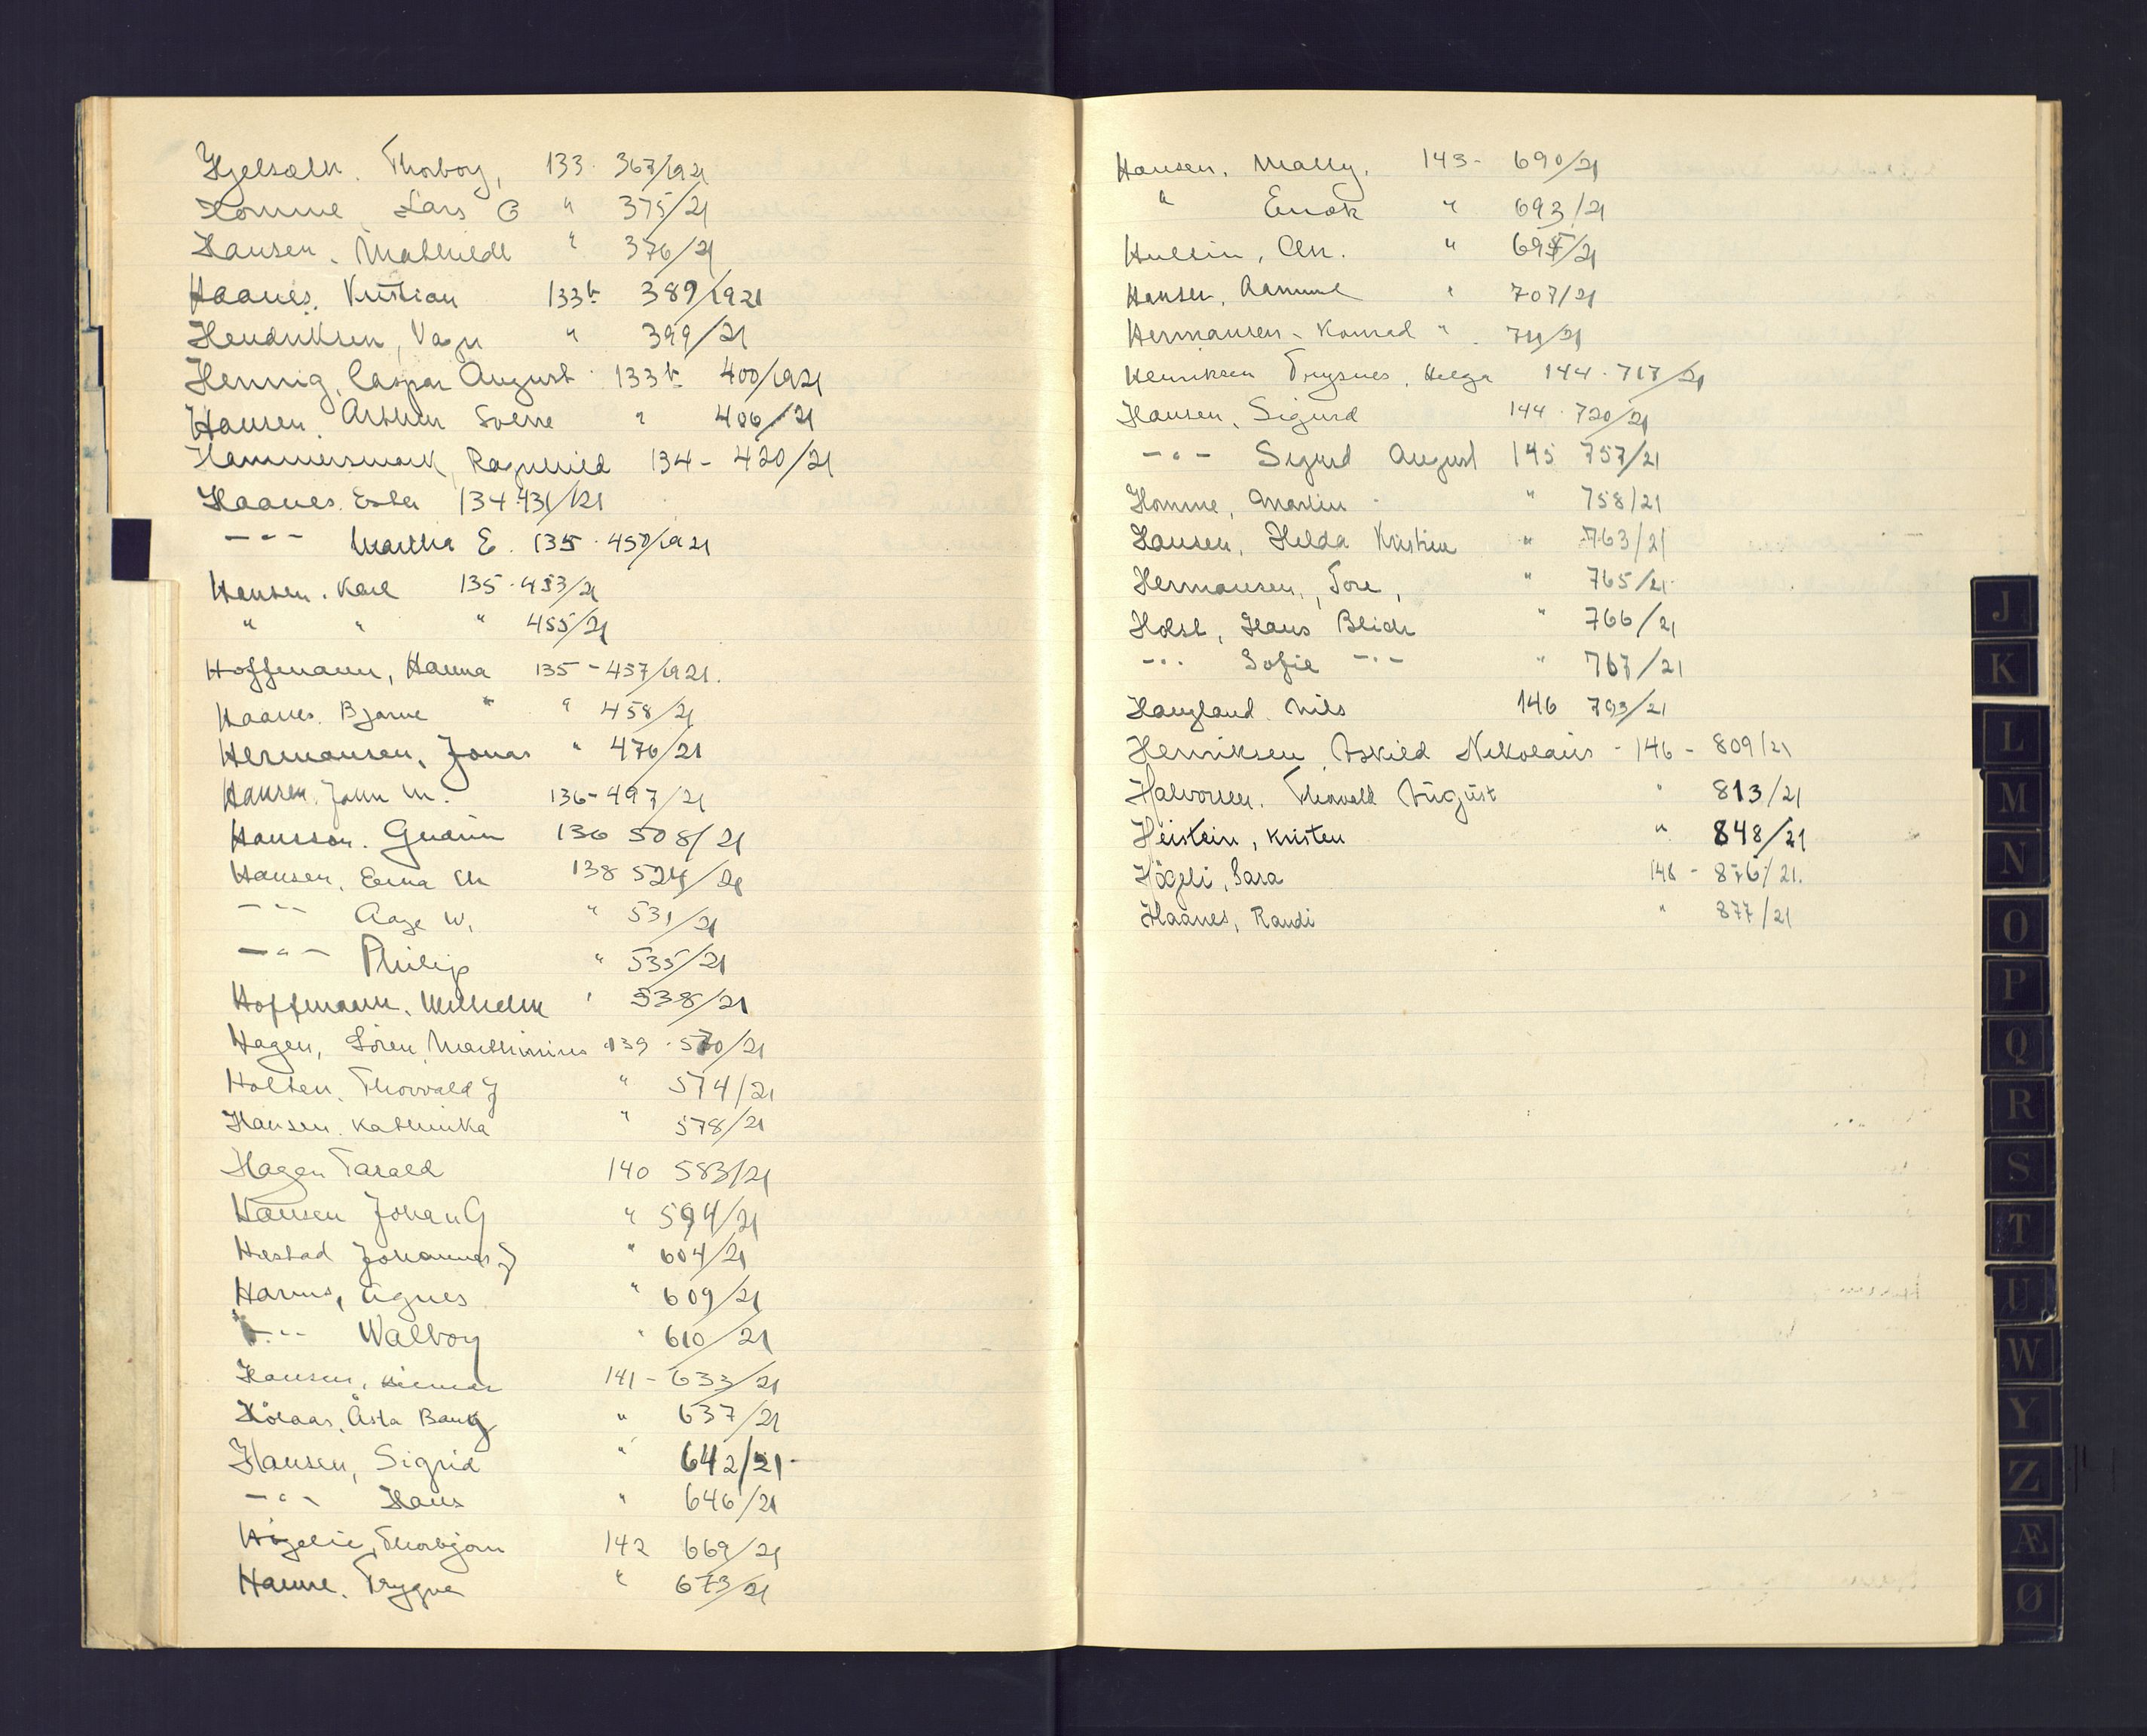 Hjelsæth. Thorborg, 133. 367/1921
Homme, Lars G " 375/21
Hansen. Mathilde " 376/21
Haanes. Kristian 133b 389/1921
Hendriksen, Vagn " 399/21
Hennig, Caspar August 133b 400/1921
Hansen. Arthur Sverre " 406/21
Hammersmark, Ragnhild 134- 420/21
Haanes. Ester 134.431/121
-"- Martha E. 135. 450/1921
Hansen. Karl 135.453/21
" " " 455/21
Hoffmann, Hanna 135-457/1921.
Haanes. Bjarne " " 458/21
Hermansen, Jonas " 476/21
Hansen. John M. 136-497/21
Hansson. Gudrun 136 508/21
Hansen, Erna M 138 524/21
-"- Aage W, " 531/21
-"- Philip " 535/21
Hoffmann. Wilhelm " 538/21
Hagen, Sören Marthinius 139.570/21
Holten. Thorvald J " 574/21
Hansen. Kathinka " 578/21
Hagen Tarald 140 583/21
Hansen Johan G " 594/21
Hestad Johannes J " 604/21
Agnes " 609/21
-"- Walborg " 610/21
Hansen, 141-633/21
Åsta Bang " 637/21
Hansen, Sigrid " 642/21-
-"- Hans " 646/21
Thorbjørn 142 669/21
Trygve " 673/21
Hansen. Mally. 143- 690/21
" Enok " 693/21
Chr. " 695/21
Hansen, " 707/21
Hermansen. Konrad " 711/21
Henriksen Trysnes, Helga 144.717/21
Hansen, Sigurd 144.720/21
-"- Sigurd August 145 757/21
Homme, Martin - " 758/21
Hansen, Helda Kristine " 763/21
Hermansen, Tore, " 765/21
Holst, Hans Blich " 766/21
-"- Sofie -"- " 767/21
Haugland. Nils 146 793/21
Henriksen, Askild Nikolaius - 146 - 809/21
Halvorsen. Thorvald August " 813/21
Heistein, Kristen " 848/21
Högeli, Sara 148 - 876/21.
Haanes, Randi " 877/21
J
K
L
M
N
O
P
Q
R
S
T
U
W
Y
Z
Æ
Ø